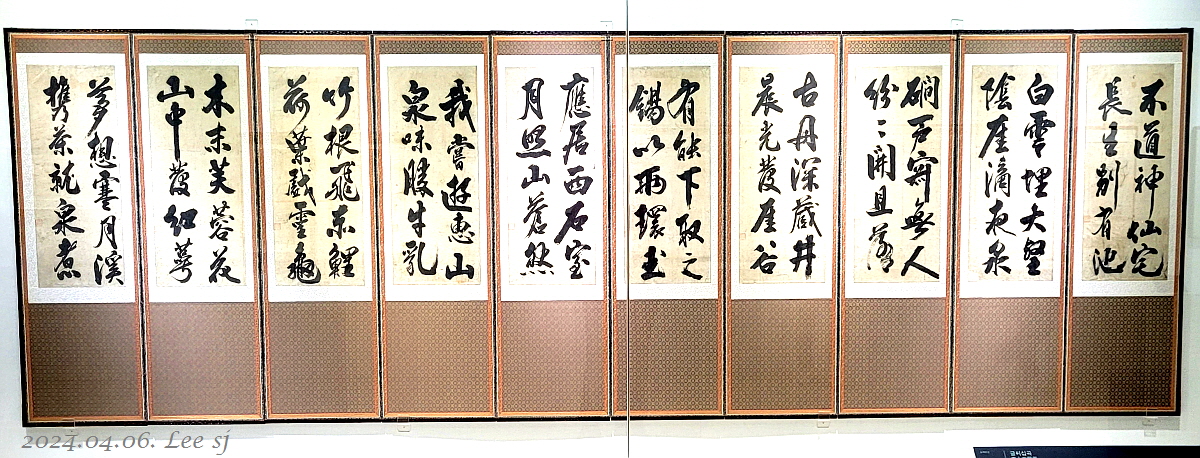 不道神仙宅
長生別有池
白雲埋大壑
陰崖滴夜泉
磵戶寂無人
紛〻開且落
古丹深藏井
晨光發崖谷
有能下取之
錫以環玉
應居西石室
月照山蒼然
我嘗遊惠山
泉味勝牛乳
竹根飛赤鯉
荷葉戲靈龜
木末芙蓉花
山中發紅萼
夢想寒月溪
携茶就泉煮
2024.04.06. Lee sj
글씨십곡